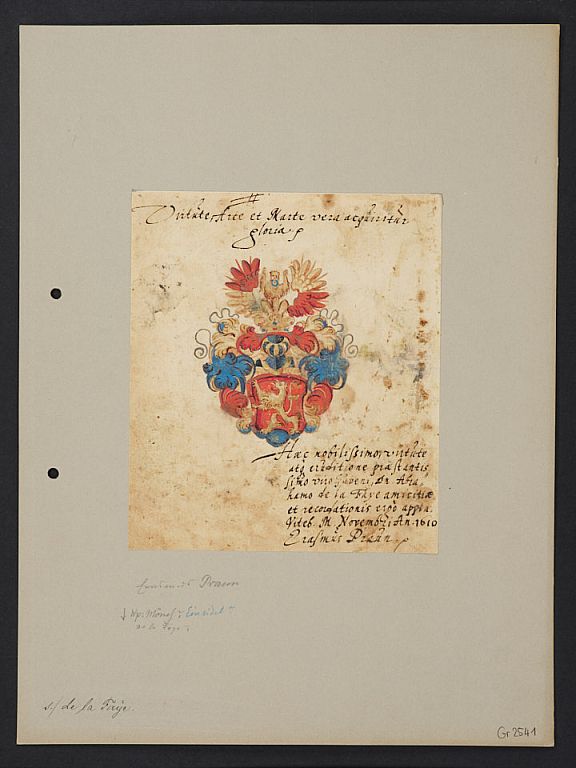 Virtute Arte et Marte vera acquiritur
gloria.
Hæc nobilissimo, virtute
atq̃ eruditione præstantis
simo viro Juveni, Dn. Abra
hamo de la Faÿe amicitiæ
et recordationis ergò appin.
Viteb. M. Novemb: An. 1610
Erasmus Praun.
Erasmus Praun
Einsidel
de la Faye
s./ de la Faÿe.
Gr 2541